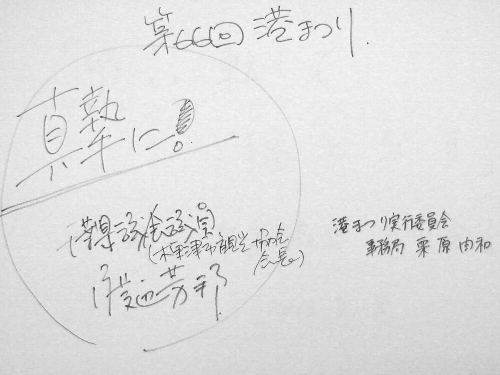 第66回港まつり.
真摯に!
千葉県議会議員
(木更津市観光協会
会長)
渡辺芳邦
港まつり実行委員会
事務局 栗原由和